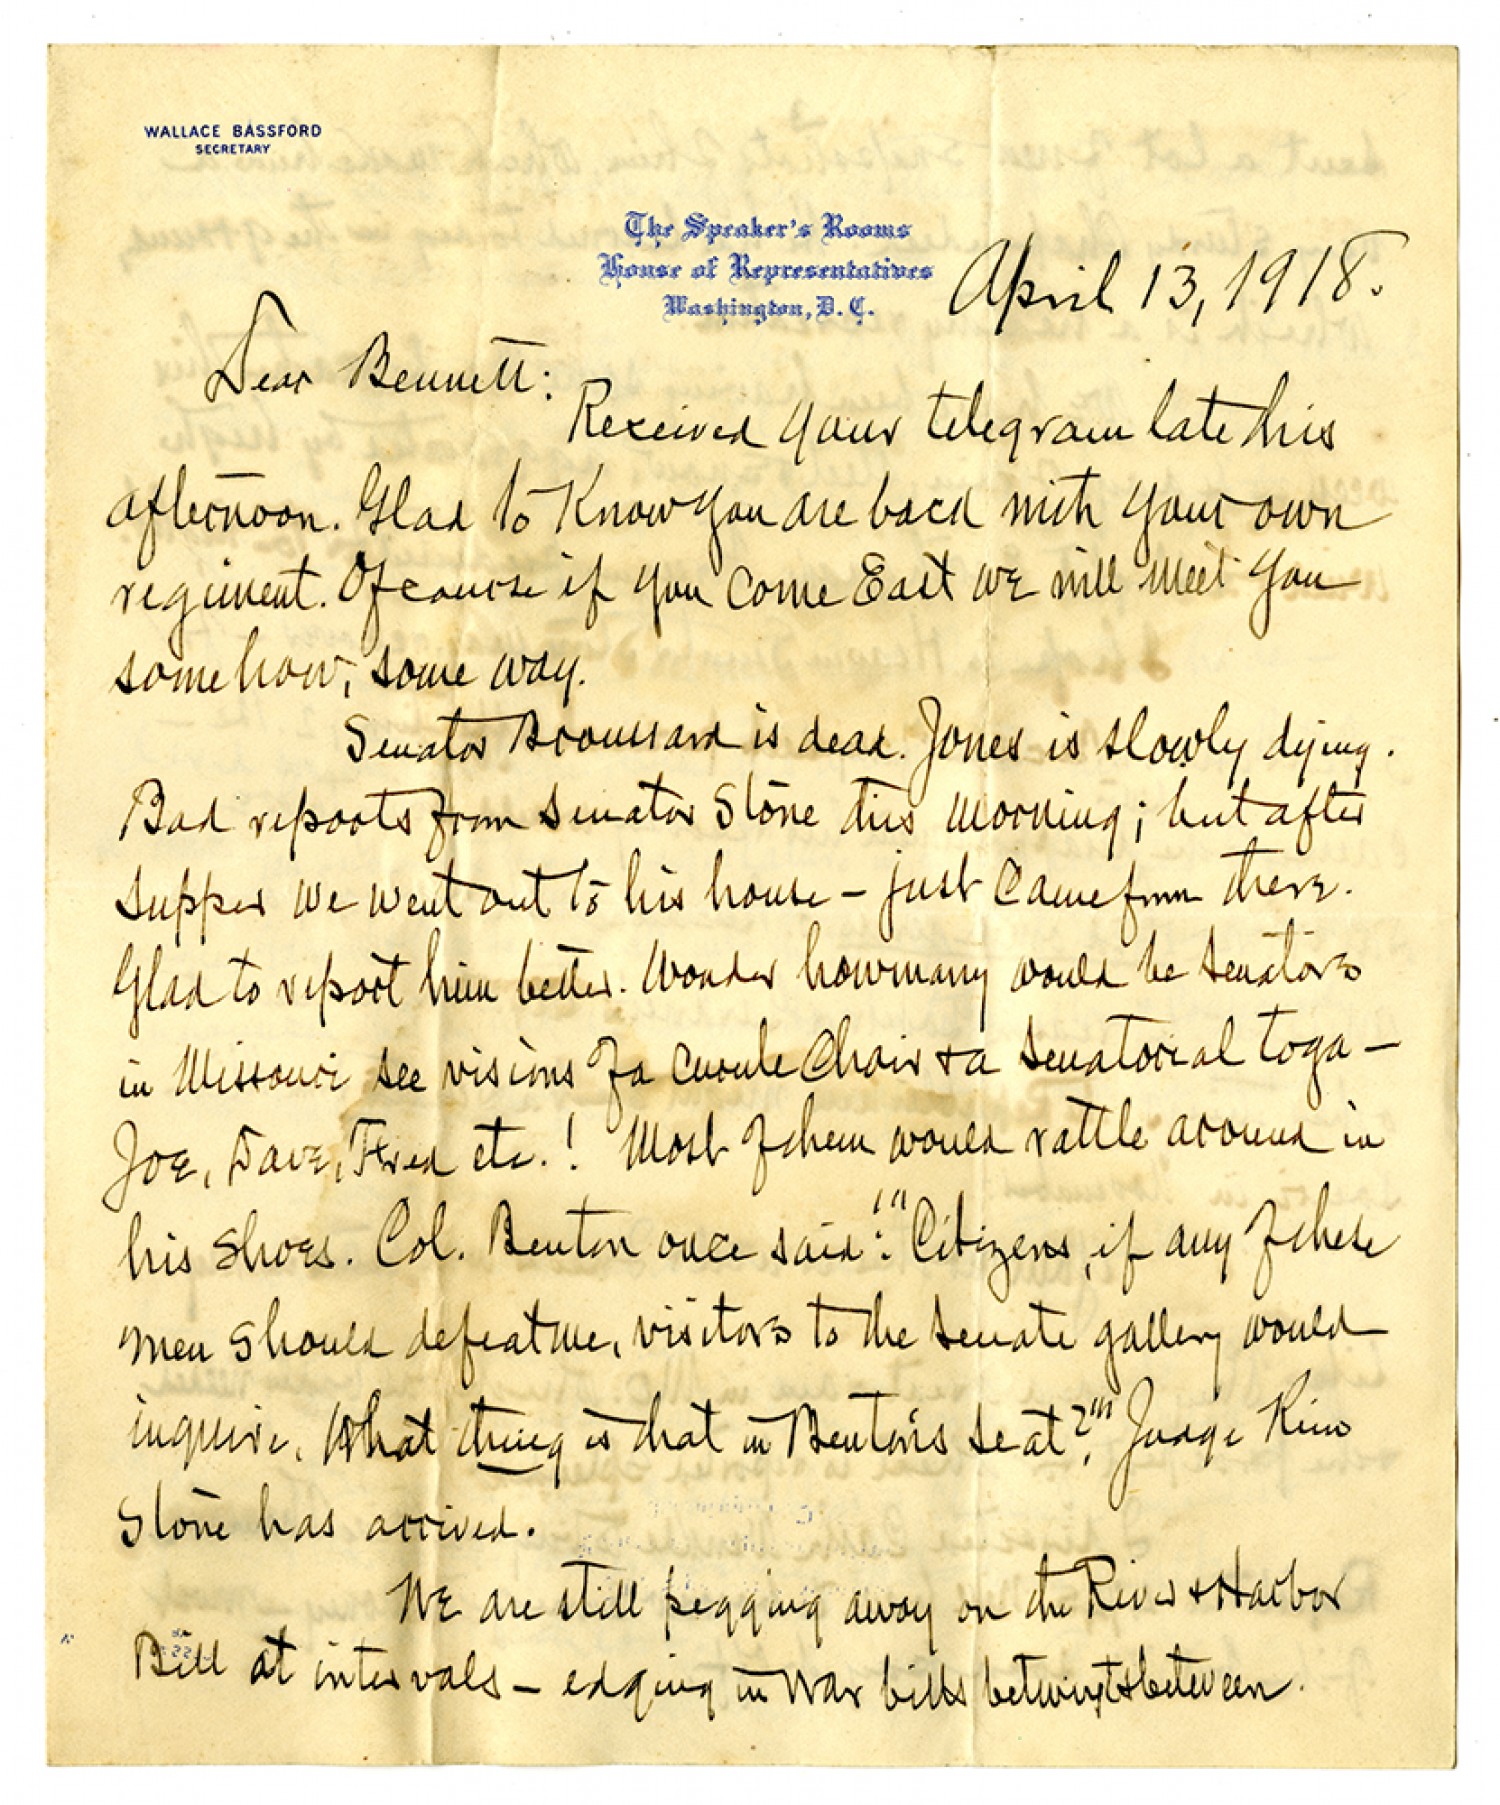 WALLACE BASSFORD
SECRETARY
The Speaker's Rooms
House of Representatives
Washington, D. C.
April 13, 1918.
Dear Bennett:
Received your telegram late this
afternoon. Glad to know you are back with your own
regiment. Of course if you come East we will meet you
somehow, some way.
Senator Broussard is dead. Jones is slowly dying.
Bad reports from Senator Stone this morning; but after
supper we went out to his house – just came from there.
Glad to report him better. Wonder how many would be Senators
in Missouri see visions of a curule chair & a Senatorial toga –
Joe, Dave, Fred etc.! Most of them would rattle around in
his shoes. Col. Benton once said: "'Citizens, if any of these
men should defeat me, visitors to the Senate gallery would
inquire, What thing is that in Benton's seat?'" Judge Kim
Stone has arrived.
We are still pegging away on the River & Harbor
Bill at intervals – edging in war bills betwixt & between.